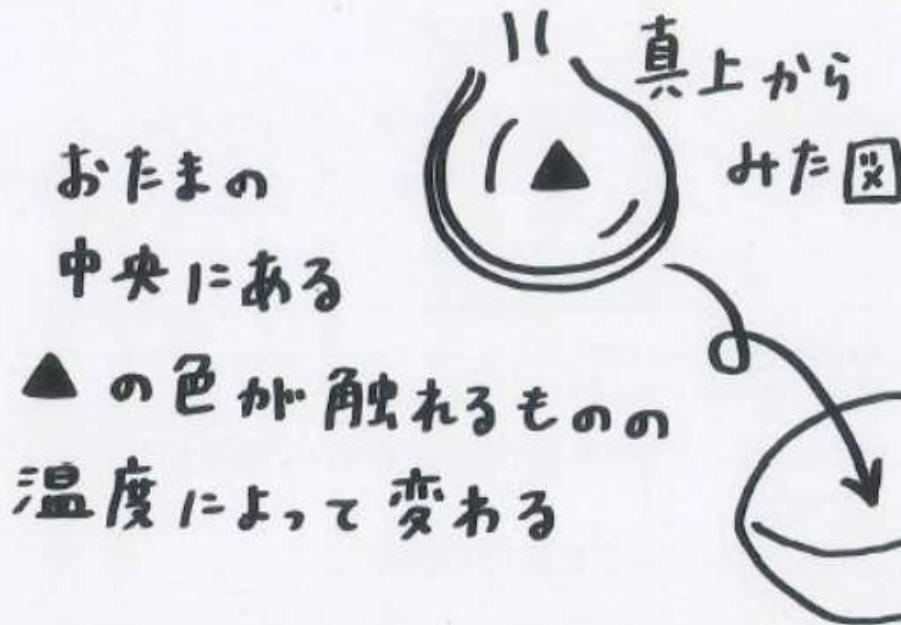 真上から
みた図
おたまの
中央にある
▲の色が触れるものの
温度によって変わる